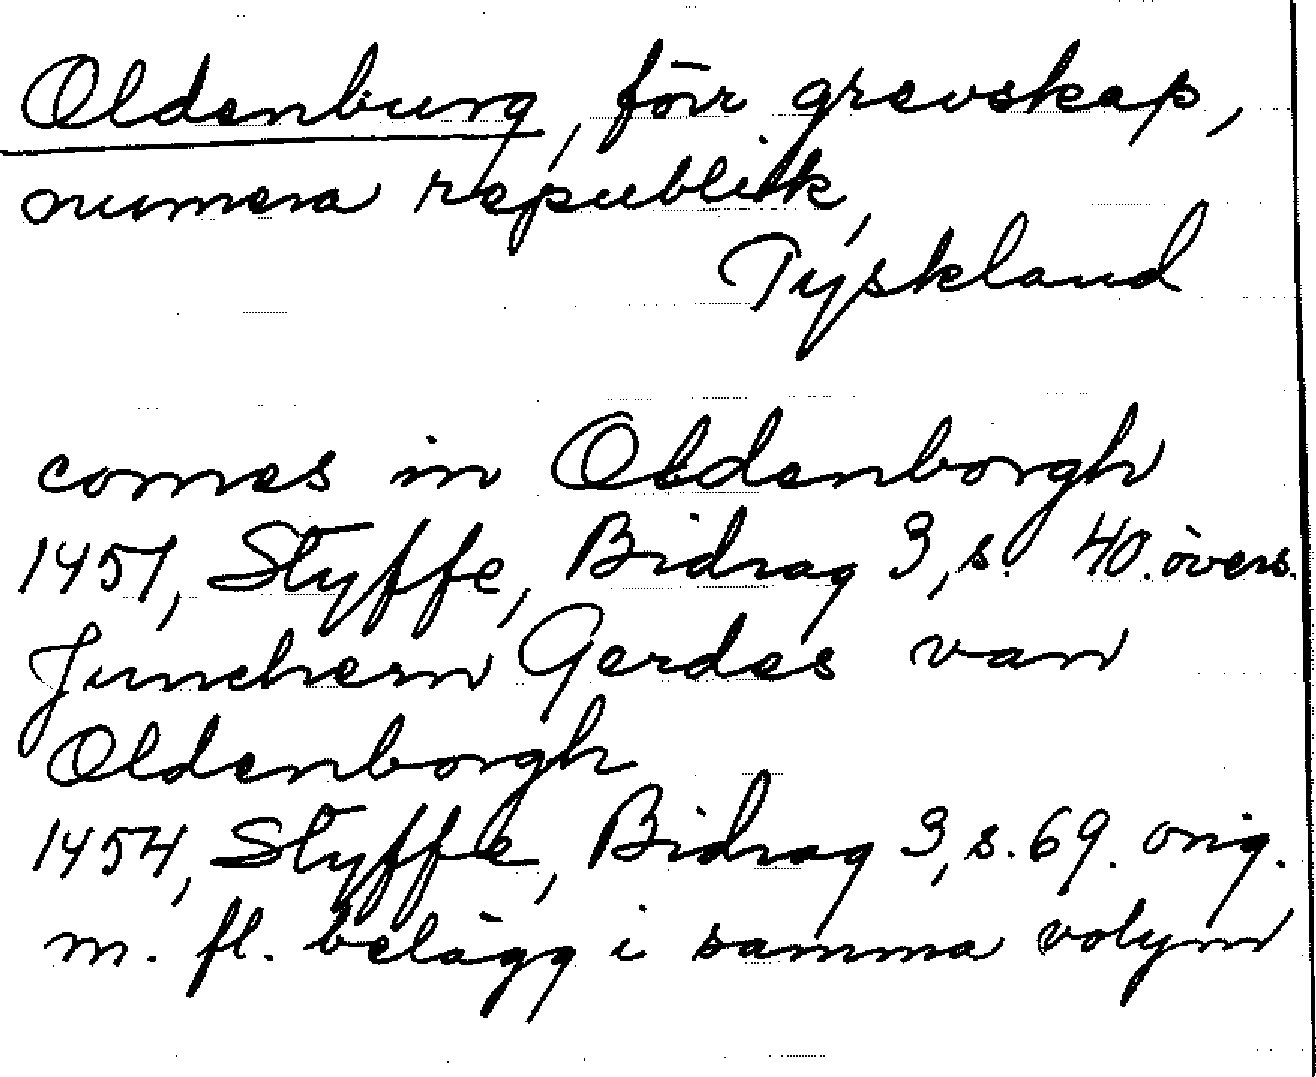 Oldenburg, förr grevskap,
numera republik,
Tyskland
comes in Oldenborgh
1451, Styffe, Bidrag 3, s. 40. övers.
Junchern Gerdes van
Oldenborgh
1454, Styffe, Bidrag 3, s. 69. orig.
m. fl. belägg i samma volym